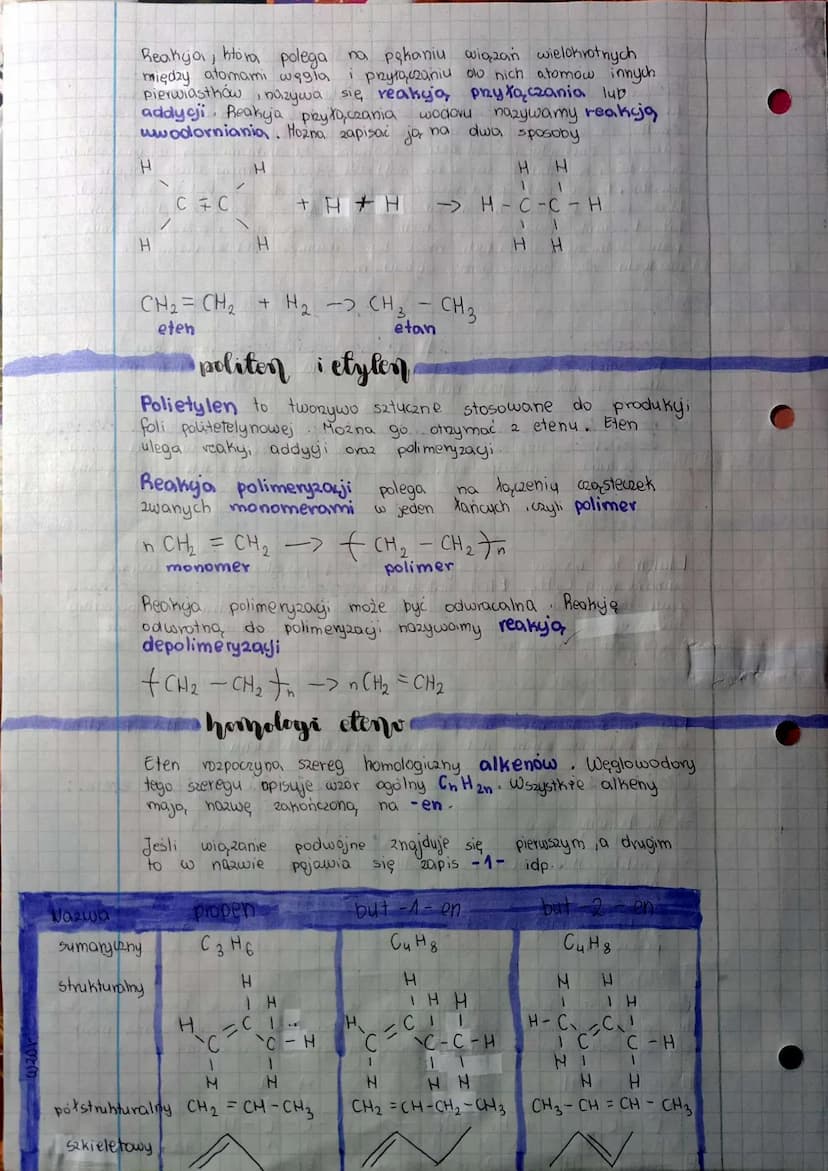 Reakcja, która polega na pękaniu wiązań wielokrotnych
między atomami węgla i przyłączaniu do nich atomów innych
pierwiastków, nazywa się reakcją przyłączania lub
addycji. Reakcja przyłączania wodoru nazywamy reakcją
uwodorniania. Można zapisać ją na dwa sposoby
H H H H
C = C + H - H -> H - C - C - H
H H H H
CH2 = CH2 + H2 -> CH3 - CH3
eten etan
politen i etylen
Polietylen to tworzywo sztuczne stosowane do produkcji
foli politetelynowej. Można go otrzymać z etenu. Eten
ulega reakcji addycji oraz polimeryzacji.
Reakcja polimeryzacji polega na łączeniu cząsteczek
zwanych monomerami w jeden łańcuch, czyli polimer
n CH2 = CH2 -> -( CH2 - CH2 )-n
monomer polimer
Reakcja polimeryzacji może być odwracalna. Reakcję
odwrotną do polimeryzacji nazywamy reakcją
depolimeryzacji
-( CH2 - CH2 )-n -> n CH2 = CH2
homologi etenu
Eten rozpoczyna szereg homologiczny alkenów. Węglowodory
tego szeregu opisuje wzór ogólny CnH2n. Wszystkie alkeny
mają nazwę zakończoną na -en.
Jeśli wiązanie podwójne znajduje się pierwszym, a drugim
to w nazwie pojawia się zapis -1- idp.
Nazwa propen but-1-en but-2-en
sumaryczny C3H6 C4H8 C4H8
strukturalny H H H H
H H H H H
H C C H C H - C C
C C - H C C - C - H C C - H
H H H H H H H H
wzór
półstrukturalny CH2 = CH - CH3 CH2 = CH - CH2 - CH3 CH3 - CH = CH - CH3
szkieletowy